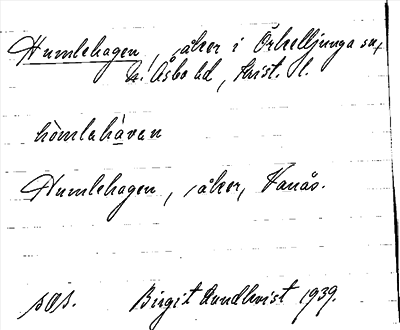 Humlehagen, åker i Örkelljunga sn,
N. Åsbo hd, Krist. l.
hòmlahàvan
Humlehagen, åker, Vanås.
Birgit Lundkvist 1939.